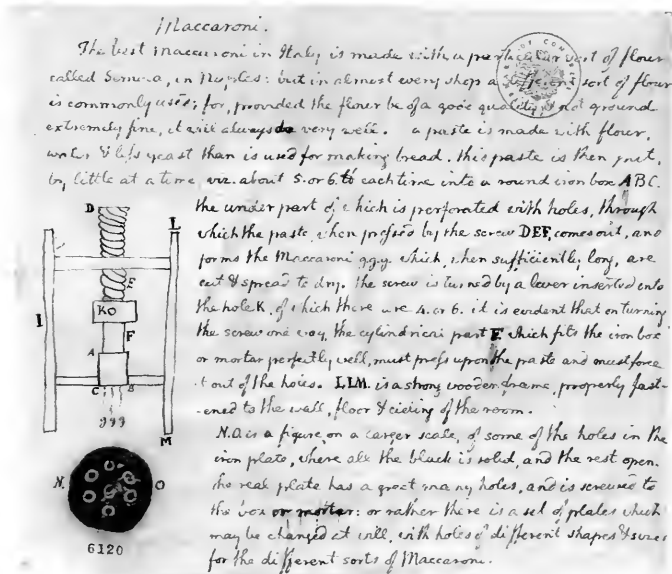 Maccaroni.
The best maccaroni in Italy is made with a particular sort of flour
called Semola, in Naples: but in almost every shop a different sort of flour
is commonly used; for, provided the flour be of a good quality, & not ground
extremely fine, it will always do very well. a paste is made with flour,
water & less yeast than is used for making bread. this paste is then put,
by little at a time, viz. about 5. or 6. ℔ each time into a round iron box ABC.
the under part of which is perforated with holes, through
which the paste, when pressed by the screw DEF, comes out, and
forms the Maccaroni g.g.g. which, when sufficiently long, are
cut & spread to dry. the screw is turned by a lever inserted into
the hole K, of which there are 4. or 6. it is evident that on turning
the screw one way, the cylindrical part F. which fits the iron box
or mortar perfectly well, must press upon the paste and must force
it out of the holes. LLM. is a strong wooden frame, properly fast-
ened to the wall, floor & cieling of the room.
N.O. is a figure, on a larger scale, of some of the holes in the
iron plate, where all the black is solid, and the rest open.
the real plate has a great many holes, and is screwed to
the box or mortar: or rather there is a set of plates which
may be changed at will, with holes of different shapes & sizes
for the different sorts of Maccaroni.
D
L
I
E
K
F
A
C
B
ggg
M
N.
O
6120